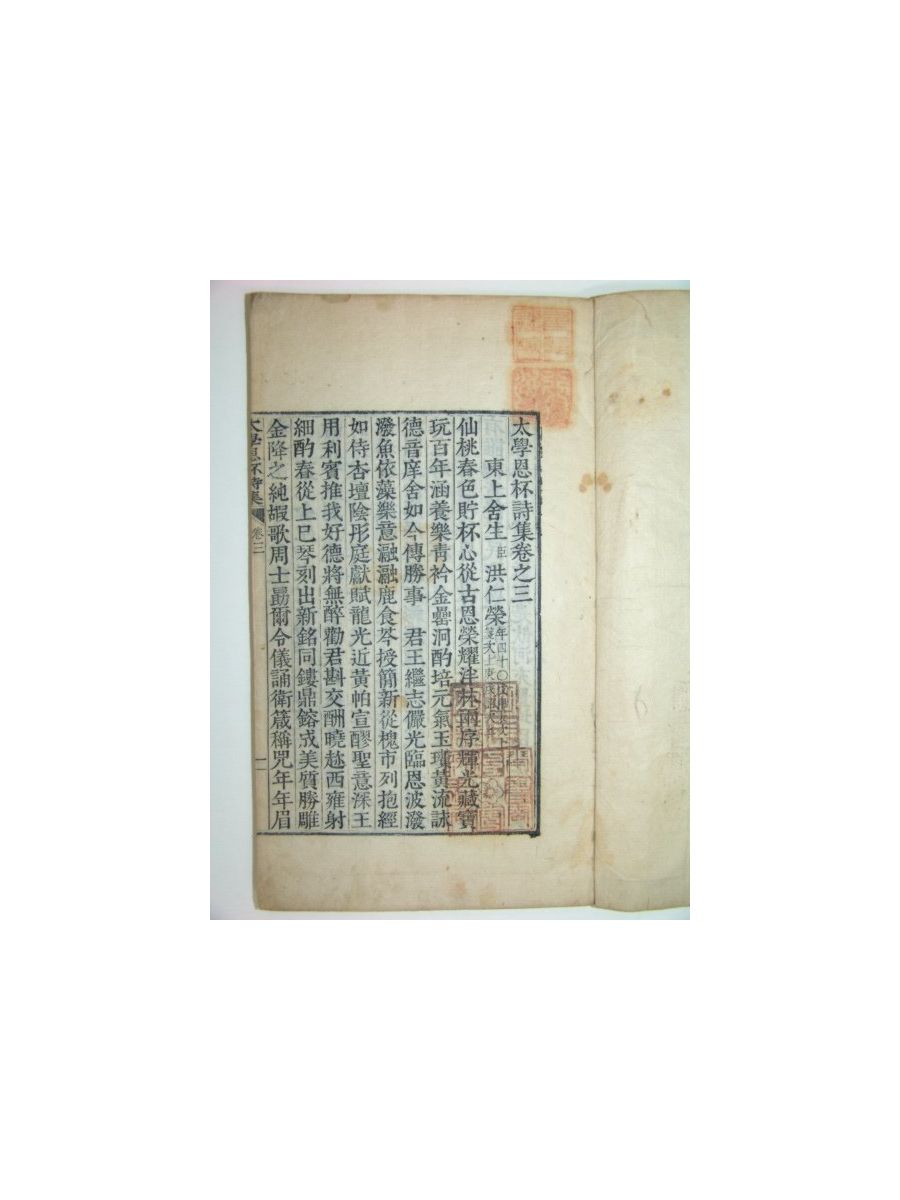 太學恩杯詩集卷之三
東上舍生臣洪仁榮年四十
仙桃春色貯杯心從古恩榮耀泮林兩序輝光藏寶
玩百年涵養樂靑衿金罍泂酌培元氣玉瓚黃流詠
德音庠舍如今傳勝事 君王繼志儼光臨恩波潑
潑魚依藻樂意瀜瀜鹿食芩授簡新從槐市列抱經
如侍杏壇陰彤庭獻賦龍光近黃帕宣醪聖意深王
用利賓推我好德將無醉勸君斟交酬曉趂西雍射
細酌春從上巳琴刻出新銘同鏤鼎鎔成美質勝雕
金降之純嘏歌周士勗爾令儀誦衛箴稱兕年年眉
太學恩杯詩集 卷三 一